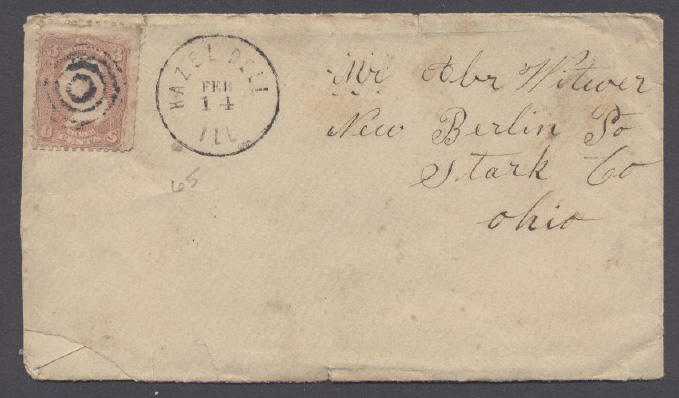 HAZEL DELL
FEB
14
ILL
Mr Abr Witwer
New Berlin Po
Stark Co
Ohio
65